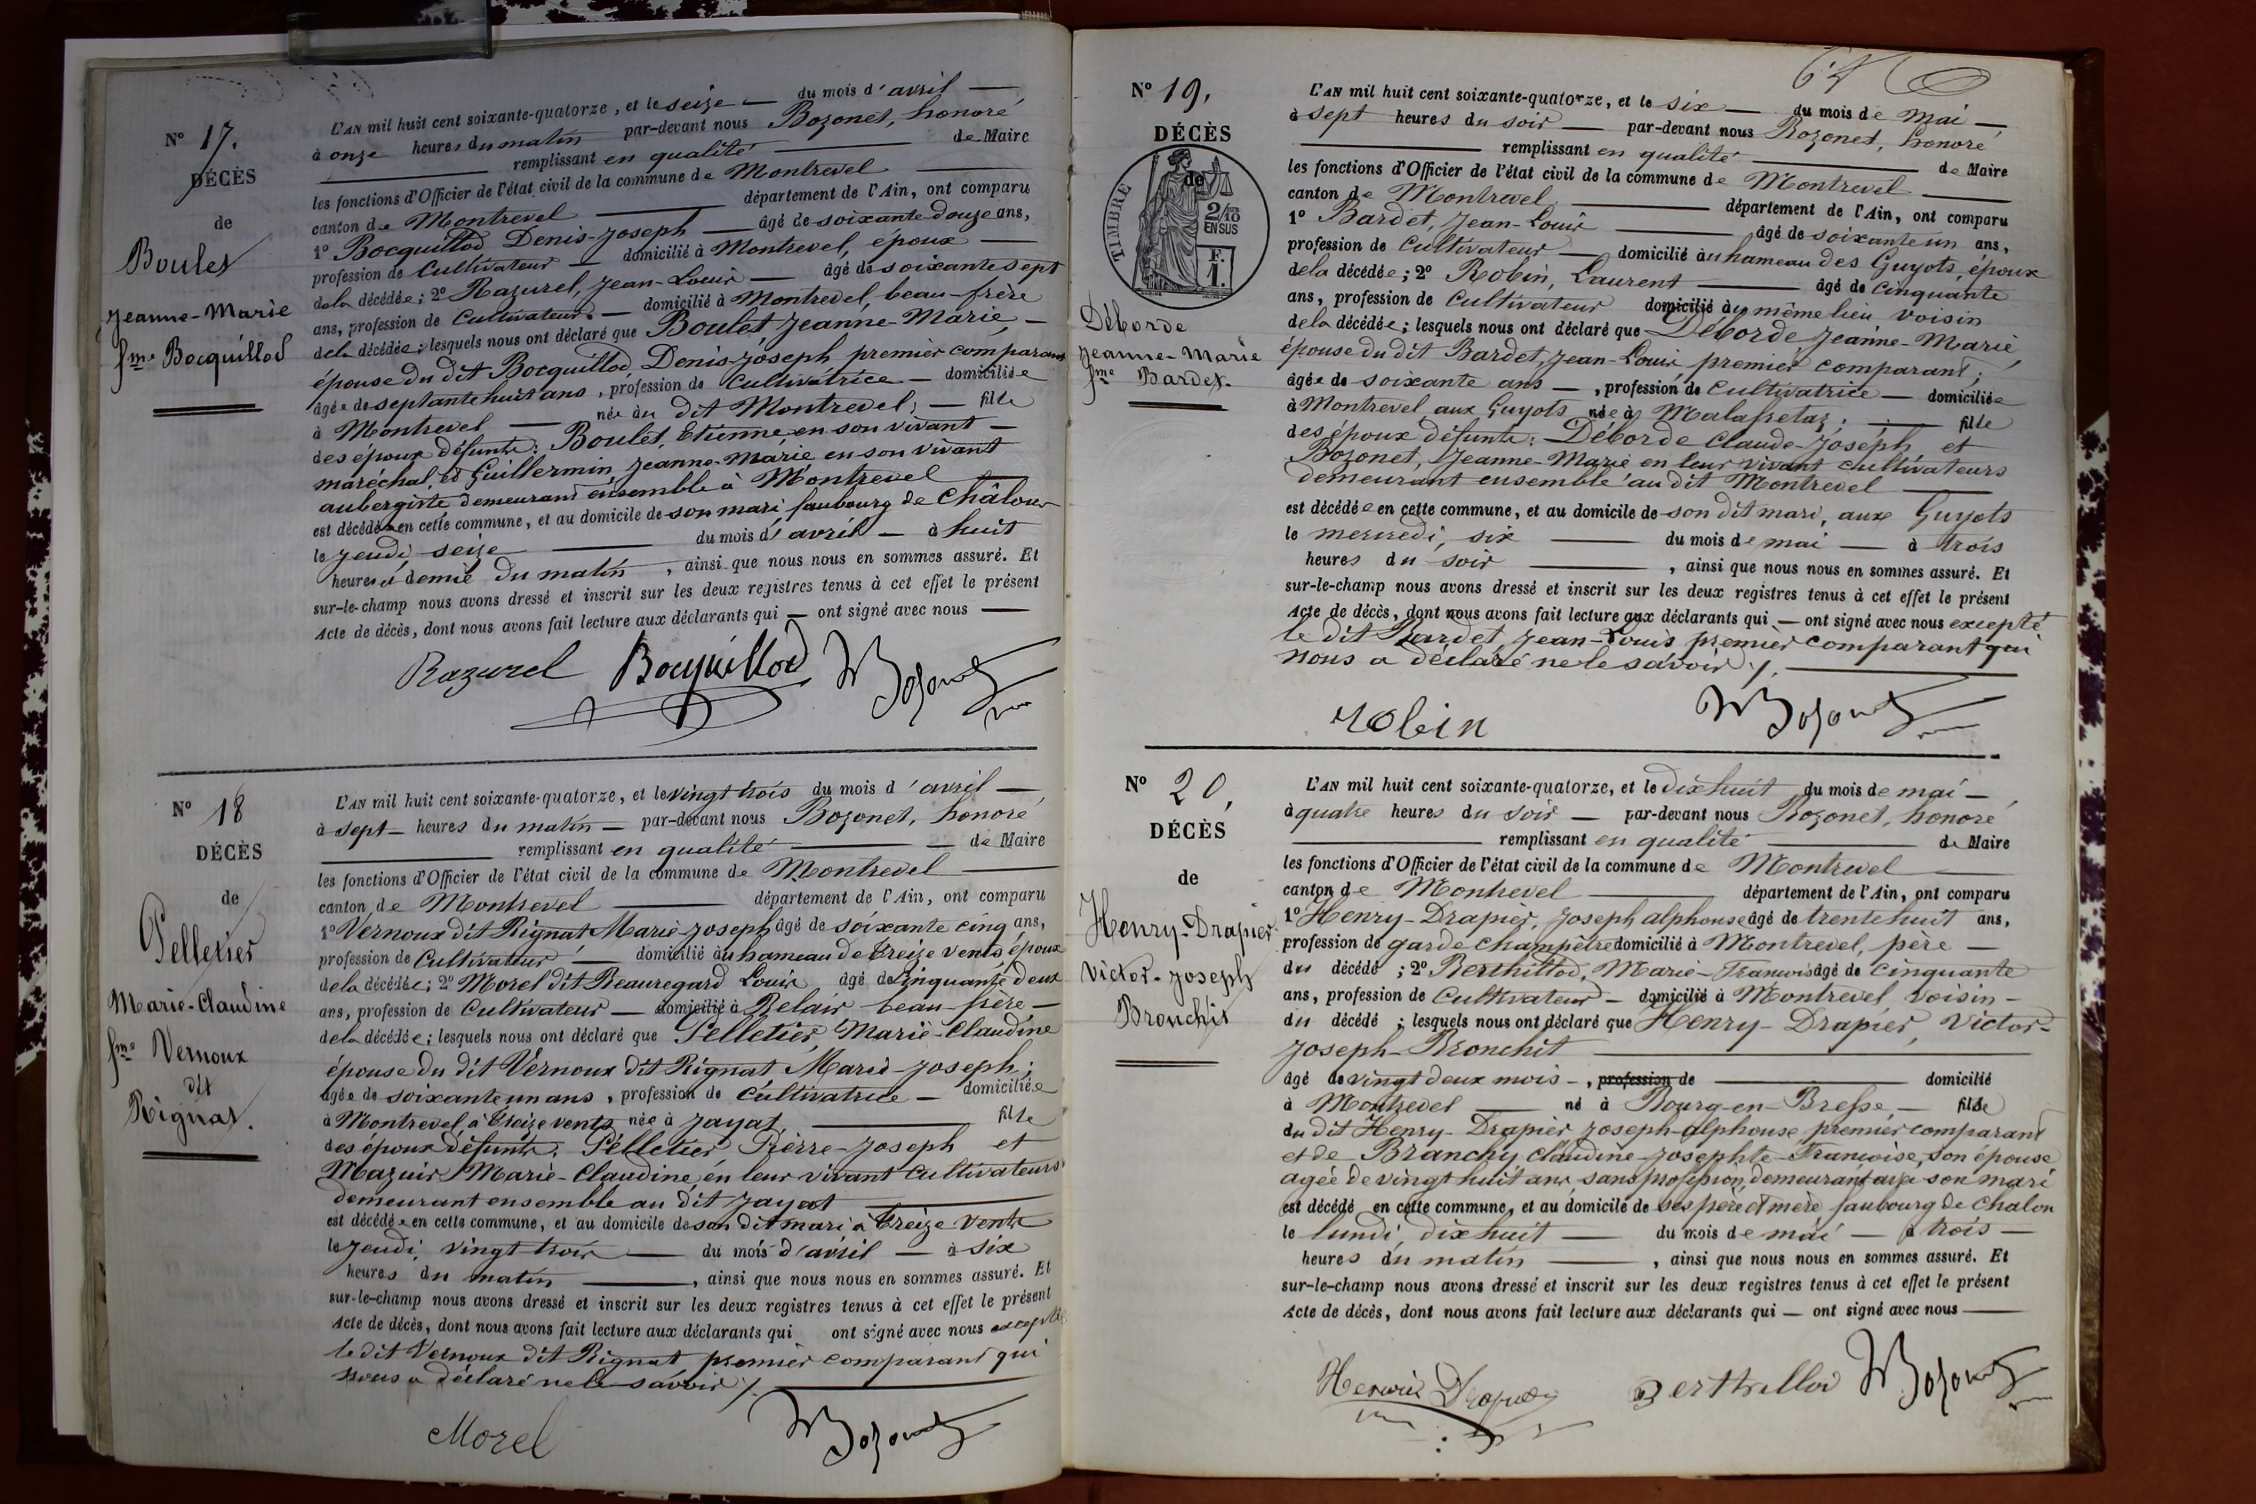 N° 17.
DÉCÈS
de
Boulet
Jeanne-Marie
fme Bocquillod
L'AN mil huit cent soixante-quatorze, et le seize — du mois d'avril —
à onze heures du matin par-devant nous Bozonet, honoré
remplissant en qualité — de Maire
les fonctions d'Officier de l'état civil de la commune de Montrevel
canton de Montrevel — département de l'Ain, ont comparu
1° Bocquillod Denis-Joseph — âgé de soixante-douze ans,
profession de Cultivateur — domicilié à Montrevel, époux —
de la décédée; 2° Razurel, Jean-Louis — âgé de soixante sept
ans, profession de Cultivateur — domicilié à Montrevel, beau-frère
de la décédée; lesquels nous ont déclaré que Boulet Jeanne-Marie, —
épouse du dit Bocquillod Denis-Joseph premier comparant
âgée de septante huit ans, profession de Cultivatrice — domiciliée
à Montrevel — née au dit Montrevel; — fille
des époux défunts: Boulet, Etienne, en son vivant —
maréchal, et Guillermin Jeanne-Marie en son vivant
aubergiste demeurant ensemble à Montrevel
est décédée en cette commune, et au domicile de son mari faubourg de Châlons
le jeudi seize — du mois d'avril — à huit
heures et demie du matin, ainsi que nous nous en sommes assuré. Et
sur-le-champ nous avons dressé et inscrit sur les deux registres tenus à cet effet le présent
Acte de décès, dont nous avons fait lecture aux déclarants qui — ont signé avec nous —
Razurel Bocquillod Bozonet
N° 18
DÉCÈS
de
Pelletier
Marie-Claudine
fme Vernoux
dit
Rignat.
L'AN mil huit cent soixante-quatorze, et le vingt trois du mois d'avril —
à sept — heures du matin — par-devant nous Bozonet, honoré
remplissant en qualité — de Maire
les fonctions d'Officier de l'état civil de la commune de Montrevel
canton de Montrevel — département de l'Ain, ont comparu
1° Vernoux dit Rignat Marie-Joseph âgé de soixante cinq ans,
profession de Cultivateur — domicilié au hameau de treize vents, époux
de la décédée; 2° Morel dit Beauregard Louis âgé de cinquante deux
ans, profession de Cultivateur — domicilié à Belair beau-frère —
de la décédée; lesquels nous ont déclaré que Pelletier, Marie-Claudine
épouse du dit Vernoux dit Rignat Marie-Joseph;
âgée de soixante un ans, profession de Cultivatrice — domiciliée
à Montrevel, à treize vents née à Jayat, — fille
des époux défunts: Pelletier Pierre-Joseph et
Mazuir Marie-Claudine, en leur vivant Cultivateurs
demeurant ensemble au dit Jayat
est décédée en cette commune, et au domicile de son dit mari à treize vents
le jeudi vingt trois — du mois d'avril — à six
heures du matin —, ainsi que nous nous en sommes assuré. Et
sur-le-champ nous avons dressé et inscrit sur les deux registres tenus à cet effet le présent
Acte de décès, dont nous avons fait lecture aux déclarants qui ont signé avec nous excepté
le dit Vernoux dit Rignat premier comparant qui
nous a déclaré ne le savoir /.
Morel Bozonet
64
N° 19.
DÉCÈS
de
TIMBRE
2/10
EN SUS
F.
1.
Déborde
Jeanne-Marie
fme Bardet.
L'AN mil huit cent soixante-quatorze, et le six — du mois de Mai —
à sept heures du soir — par-devant nous Bozonet, honoré
remplissant en qualité — de Maire
les fonctions d'Officier de l'état civil de la commune de Montrevel
canton de Montrevel — département de l'Ain, ont comparu
1° Bardet, Jean-Louis — âgé de soixante un ans,
profession de Cultivateur — domicilié au hameau des Guyots, époux
de la décédée; 2° Robin, Laurent — âgé de cinquante
ans, profession de Cultivateur domicilié au même lieu voisin
de la décédée; lesquels nous ont déclaré que Déborde Jeanne-Marie,
épouse du dit Bardet, Jean-Louis, premier comparant;
âgée de soixante ans —, profession de Cultivatrice — domiciliée
à Montrevel aux Guyots née à Malafretaz; — fille
des époux défunts: Déborde Claude-Joseph et
Bozonet, Jeanne-Marie en leur vivant cultivateurs
demeurant ensemble au dit Montrevel
est décédée en cette commune, et au domicile de son dit mari, aux Guyots
le mercredi, six — du mois de mai — à trois
heures du soir —, ainsi que nous nous en sommes assuré. Et
sur-le-champ nous avons dressé et inscrit sur les deux registres tenus à cet effet le présent
Acte de décès, dont nous avons fait lecture aux déclarants qui — ont signé avec nous excepté
le dit Bardet, Jean-Louis premier comparant qui
nous a déclaré ne le savoir /.
Robin Bozonet
N° 20,
DÉCÈS
de
Henry-Drapier
Victor-Joseph
Bronchit
L'AN mil huit cent soixante-quatorze, et le dix huit du mois de mai —
à quatre heures du soir — par-devant nous Bozonet, honoré
remplissant en qualité — de Maire
les fonctions d'Officier de l'état civil de la commune de Montrevel
canton de Montrevel — département de l'Ain, ont comparu
1° Henry-Drapier, Joseph alphonse âgé de trente huit ans,
profession de garde champêtre domicilié à Montrevel, père —
du décédé; 2° Berthillod, Marie-Francois âgé de cinquante
ans, profession de Cultivateur — domicilié à Montrevel voisin —
du décédé; lesquels nous ont déclaré que Henry-Drapier, Victor-
Joseph-Bronchit
âgé de vingt deux mois —, profession de — domicilié
à Montrevel — né à Bourg-en-Bresse, — fils
du dit Henry-Drapier Joseph-alphonse premier comparant
et de Branchy Claudine-Josephte-Francoise, son épouse
agée de vingt huit ans sans profession, demeurant avec son mari
est décédé en cette commune, et au domicile de ses père et mère faubourg de Chalon
le lundi, dix huit — du mois de mai — à trois —
heures du matin —, ainsi que nous nous en sommes assuré. Et
sur-le-champ nous avons dressé et inscrit sur les deux registres tenus à cet effet le présent
Acte de décès, dont nous avons fait lecture aux déclarants qui — ont signé avec nous —
Henrie Drapier Berthillod Bozonet